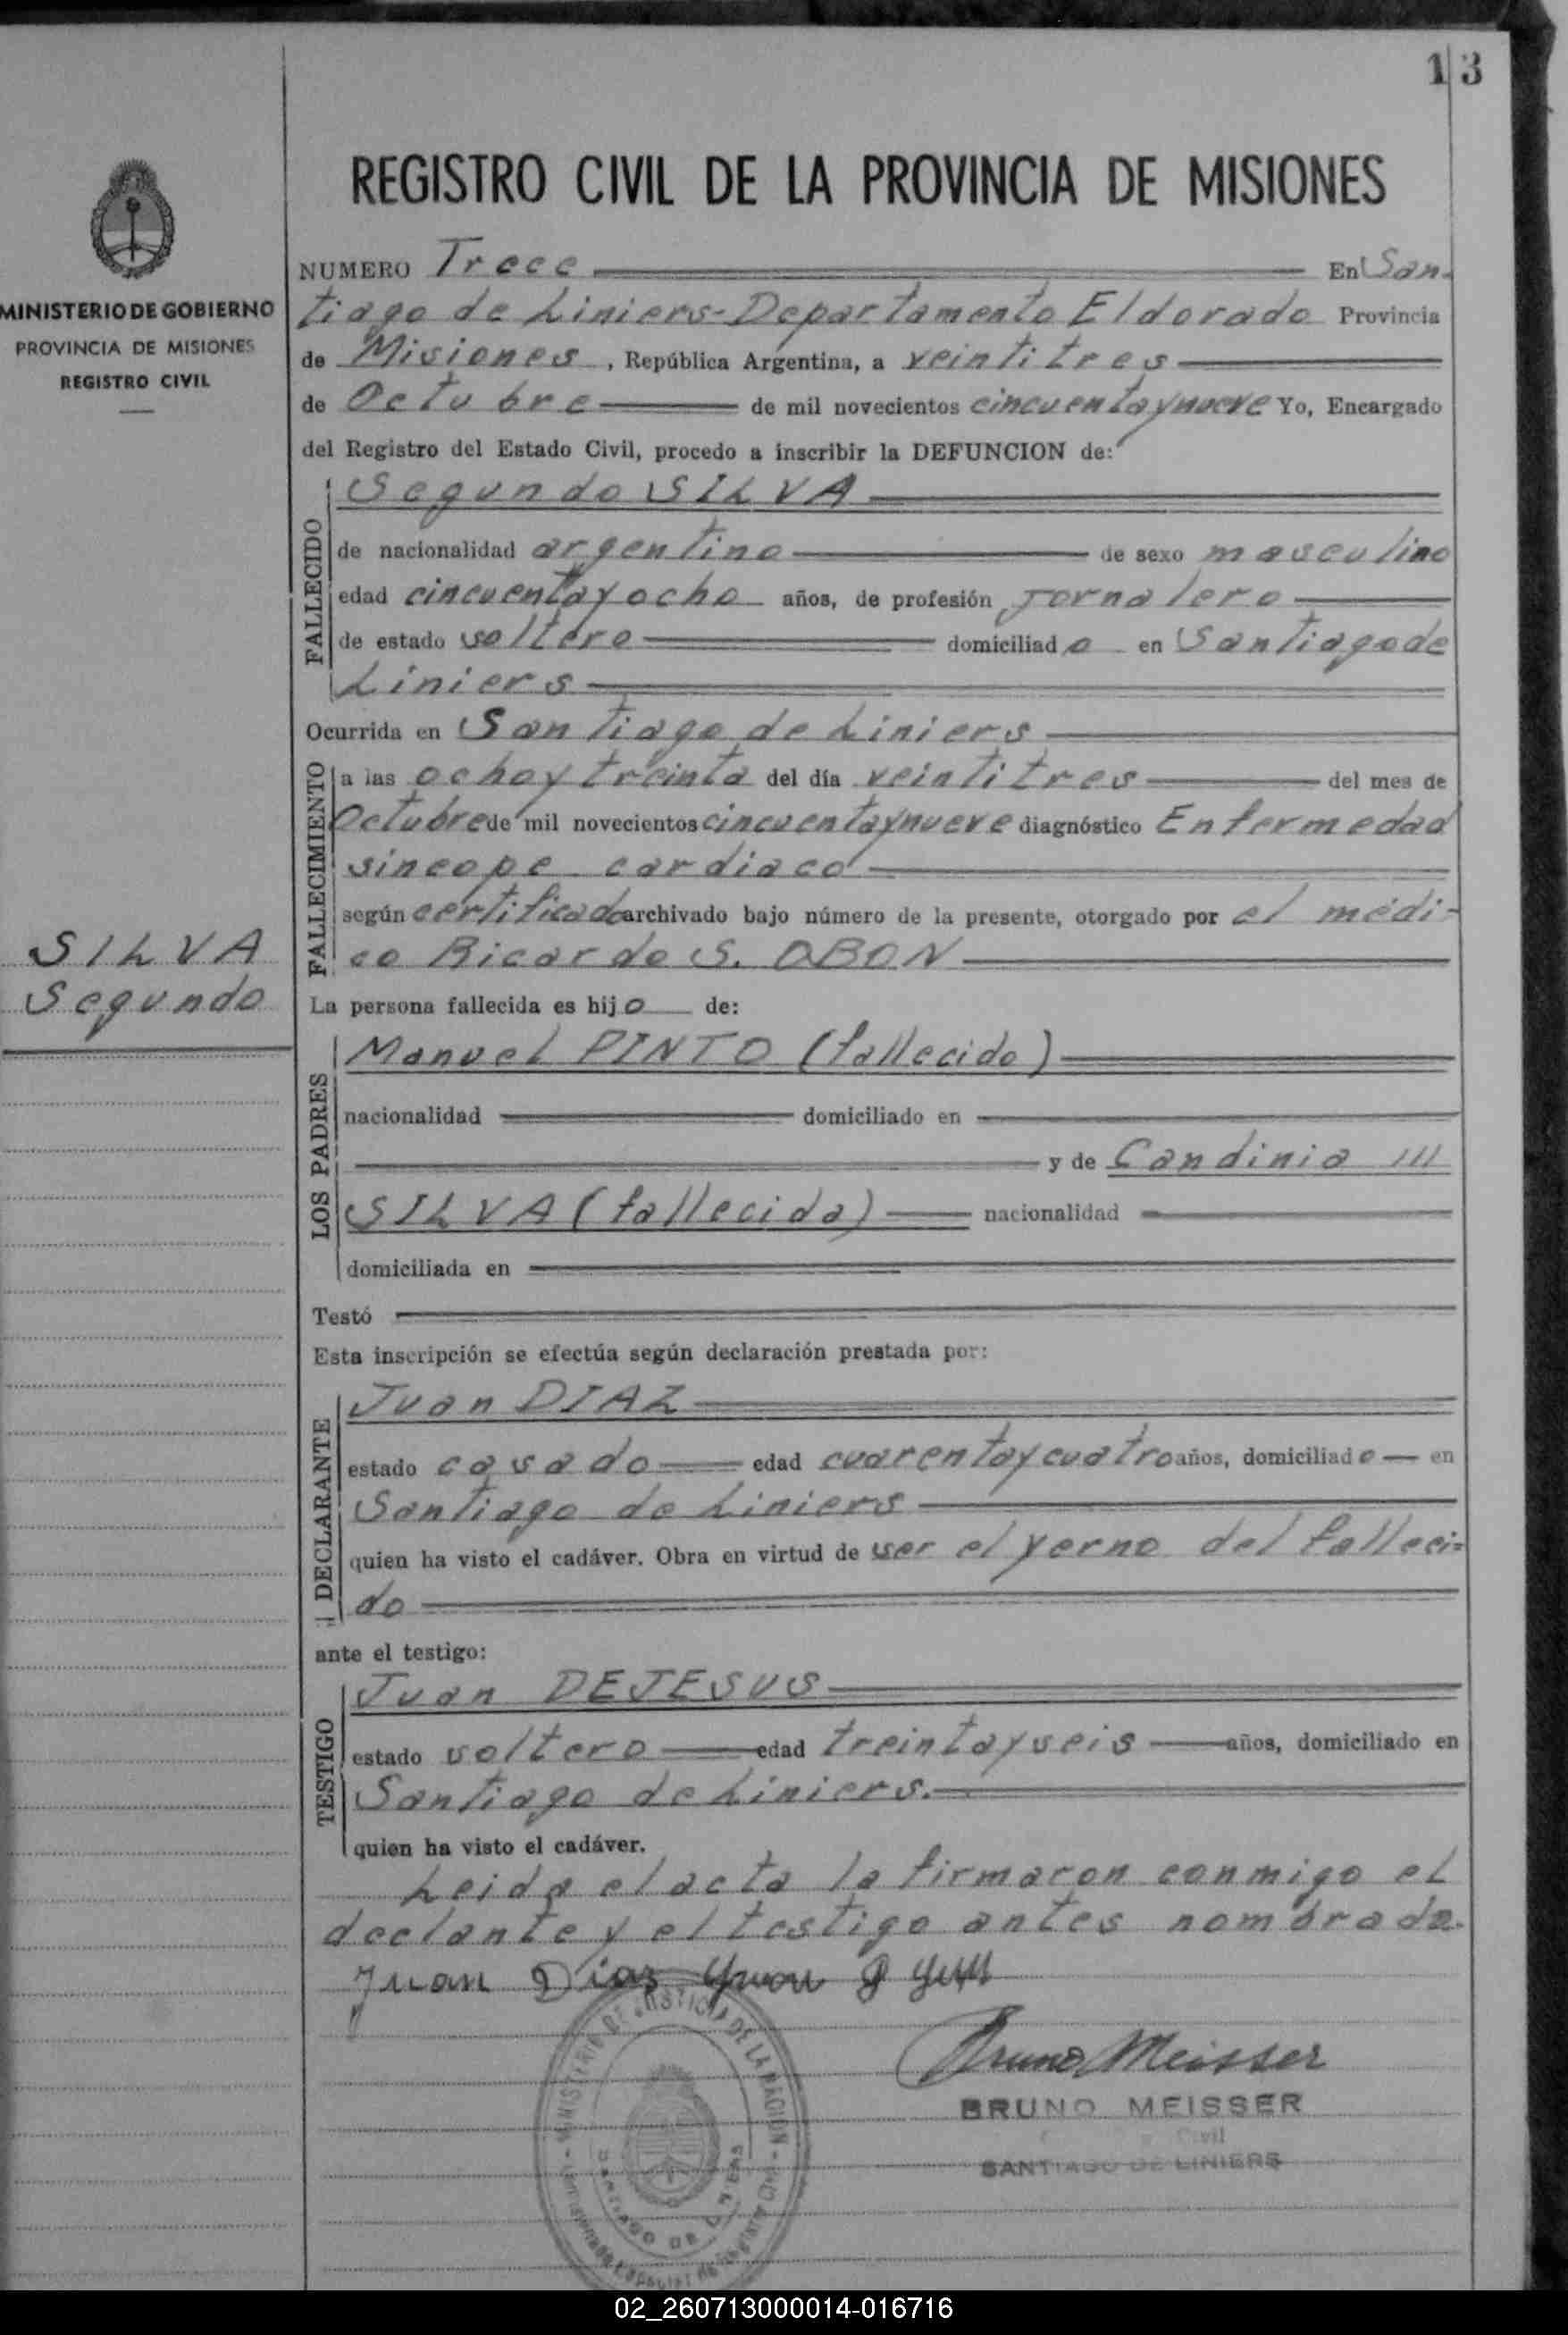 13
REGISTRO CIVIL DE LA PROVINCIA DE MISIONES
MINISTERIO DE GOBIERNO
PROVINCIA DE MISIONES
REGISTRO CIVIL
NUMERO Trece En San-
tiago de Liniers-Departamento Eldorado Provincia
de Misiones, República Argentina, a veintitres
de Octubre de mil novecientos cincuentaynueve Yo, Encargado
del Registro del Estado Civil, procedo a inscribir la DEFUNCION de:
FALLECIDO
Segundo SILVA
de nacionalidad argentino de sexo masculino
edad cincuentayocho años, de profesión jornalero
de estado soltero domiciliado en Santiago de
Liniers
Ocurrida en Santiago de Liniers
FALLECIMIENTO
a las ochoytreinta del día veintitres del mes de
Octubre de mil novecientos cincuentaynueve diagnóstico Enfermedad
sincope cardiaco
según certificado archivado bajo número de la presente, otorgado por el médi-
co Ricardo S. OBON
SILVA
Segundo
La persona fallecida es hijo de:
LOS PADRES
Manuel PINTO (fallecido)
nacionalidad domiciliado en
y de Candinia
SILVA (fallecida) nacionalidad
domiciliada en
Testó
Esta inscripción se efectúa según declaración prestada por:
DECLARANTE
Juan DIAZ
estado casado edad cuarentaycuatro años, domiciliado en
Santiago de Liniers
quien ha visto el cadáver. Obra en virtud de ser el yerno del falleci=
do
ante el testigo:
TESTIGO
Juan DEJESUS
estado soltero edad treintayseis años, domiciliado en
Santiago de Liniers.
quien ha visto el cadáver.
Leida el acta la firmaron conmigo el
declante y el testigo antes nombrado.
Juan Diaz
Bruno Meisser
BRUNO MEISSER
Civil
SANTIAGO DE LINIERS
MINISTERIO DE JUSTICIA DE LA NACION
SANTIAGO DE LINIERS
02_260713000014-016716